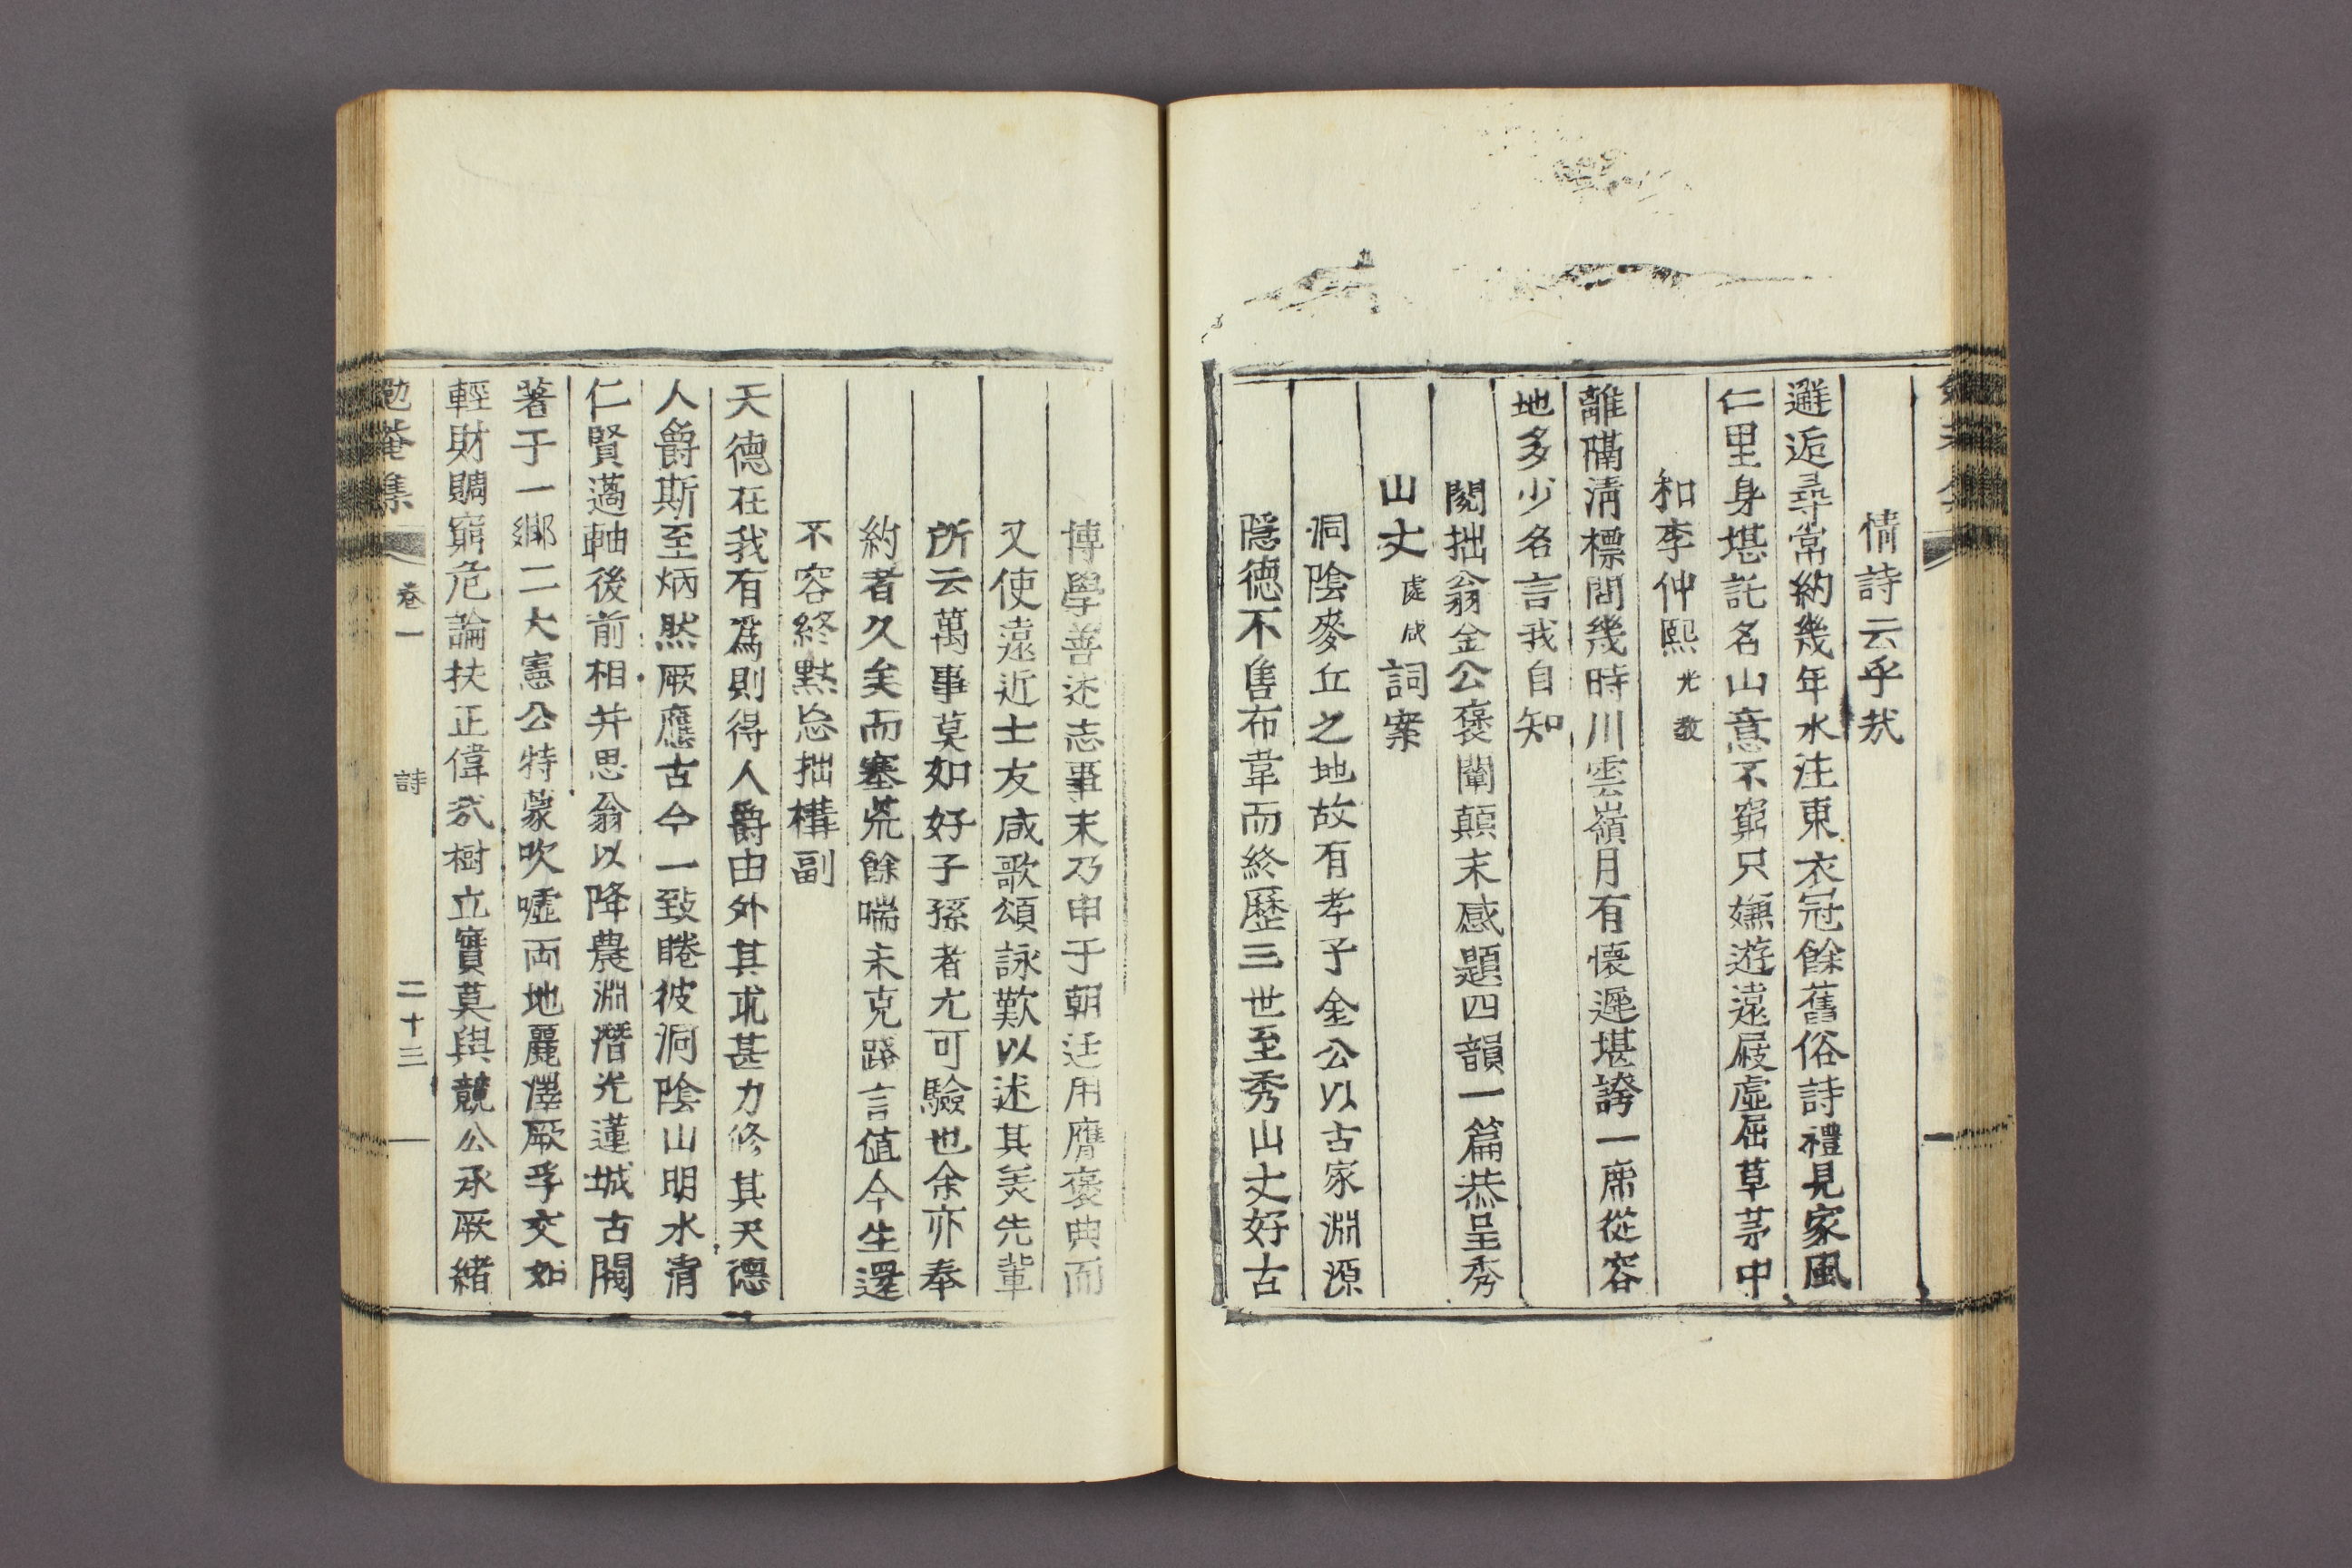 情詩云乎㢤
邂逅尋常約幾年水注東衣冠餘舊俗詩禮見家風
仁里身堪託名山意不窮只嫌遊遠屐虛屈草茅中
和李仲熙光敎
離隔淸標問幾時川雲嶺月有懷遲堪誇一席從容
地多少名言我自知
閱拙翁金公褒闡顛末感題四韻一篇恭呈秀
山丈處欣詞案
洞陰麥丘之地故有孝子金公以古家淵源
隱德不售布韋而終歷三世至秀山丈好古
博學善述志事末乃申于朝廷用膺褒典而
又使遠近士友咸歌頌詠歎以述其美先輩
所云萬事莫如好子孫者尤可驗也余亦奉
約者久矣而塞荒餘喘未克踐言値今生還
不容終默忘拙構副
天德在我有爲則得人爵由外其求甚力修其天德
人爵斯至炳然厥應古今一致睠彼洞陰山明水淸
仁賢薖軸後前相幷思翁以降農淵潛光蓮城古閥
著于一鄕二大憲公特蒙吹噓両地麗澤厥孚交如
輕財賙窮危論扶正偉㢤樹立實莫與競公承厥緖
勉菴集 卷一 詩 二十三